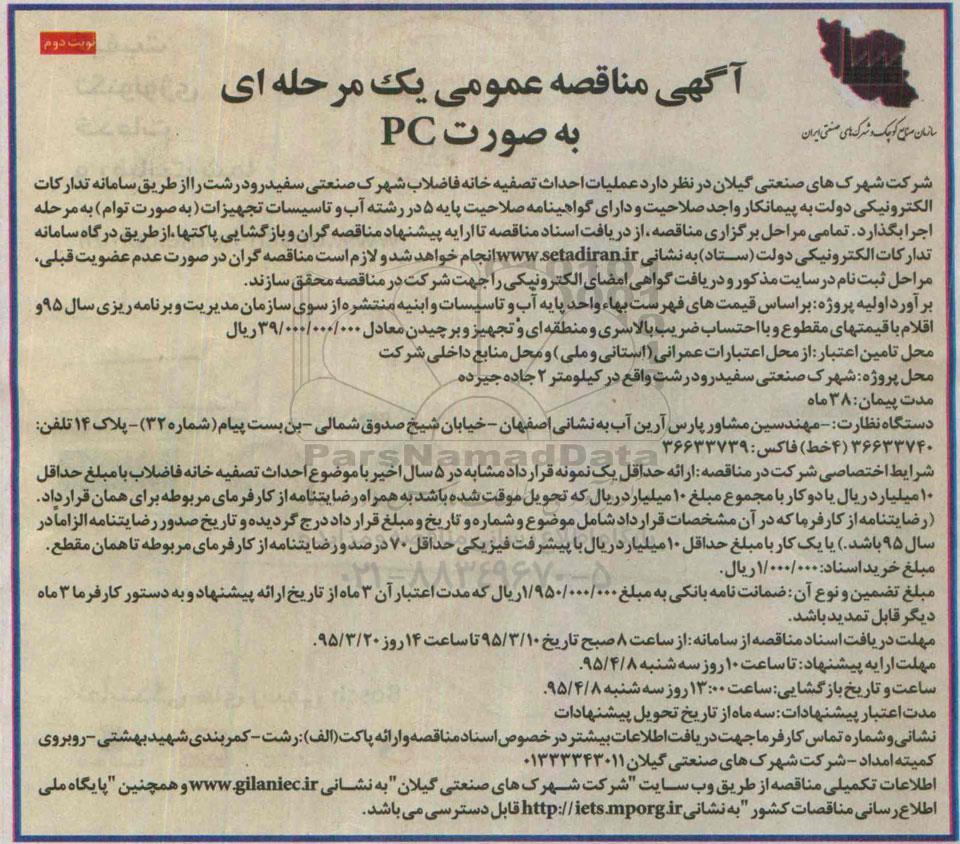 نوبت دوم
آگهی مناقصه عمومی یک مرحله ای
به صورت PC
سازمان صنایع کوچک و شهرک های صنعتی ایران
شرکت شهرک های صنعتی گیلان در نظر دارد عملیات احداث تصفیه خانه فاضلاب شهرک صنعتی سفیدرود رشت را از طریق سامانه تدارکات
الکترونیکی دولت به پیمانکار واجد صلاحیت و دارای گواهینامه صلاحیت پایه ۵ در رشته آب و تاسیسات تجهیزات (به صورت توام) به مرحله
اجرا بگذارد. تمامی مراحل برگزاری مناقصه، از دریافت اسناد مناقصه تا ارایه پیشنهاد مناقصه گران و بازگشایی پاکتها، از طریق درگاه سامانه
تدارکات الکترونیکی دولت (ستاد) به نشانی www.setadiran.ir انجام خواهد شد و لازم است مناقصه گران در صورت عدم عضویت قبلی،
مراحل ثبت نام در سایت مذکور و دریافت گواهی امضای الکترونیکی را جهت شرکت در مناقصه محقق سازند.
برآورد اولیه پروژه: براساس قیمت های فهرست بهاء واحد پایه آب و تاسیسات و ابنیه منتشره از سوی سازمان مدیریت و برنامه ریزی سال ۹۵ و
اقلام با قیمتهای مقطوع و با احتساب ضریب بالاسری و منطقه ای و تجهیز و برچیدن معادل ۳۹/۰۰۰/۰۰۰/۰۰۰ ریال
محل تامین اعتبار: از محل اعتبارات عمرانی (استانی و ملی) و محل منابع داخلی شرکت
محل پروژه: شهرک صنعتی سفیدرود رشت واقع در کیلومتر ۲ جاده جیرده
مدت پیمان: ۳۸ ماه
دستگاه نظارت: -مهندسین مشاور پارس آرین آب به نشانی اصفهان - خیابان شیخ صدوق شمالی - بن بست پیام (شماره ۳۲) - پلاک ۱۴ تلفن:
۳۶۶۳۳۷۴۰ (۴خط) فاکس: ۳۶۶۳۳۷۳۹
ParsNamadData
شرایط اختصاصی شرکت در مناقصه: ارائه حداقل یک نمونه قرارداد مشابه در ۵ سال اخیر با موضوع احداث تصفیه خانه فاضلاب با مبلغ حداقل
۱۰ میلیارد ریال یا دو کار با مجموع مبلغ ۱۰ میلیارد ریال که تحویل موقت شده باشد به همراه رضایتنامه از کارفرمای مربوطه برای همان قرارداد.
(رضایتنامه از کارفرما که در آن مشخصات قرارداد شامل موضوع و شماره و تاریخ و مبلغ قرارداد درج گردیده و تاریخ صدور رضایتنامه الزاماً در
سال ۹۵ باشد.) یا یک کار با مبلغ حداقل ۱۰ میلیارد ریال با پیشرفت فیزیکی حداقل ۷۰ درصد و رضایتنامه از کارفرمای مربوطه تا همان مقطع.
مبلغ خرید اسناد: ۱/۰۰۰/۰۰۰ ریال.
۰۲۱-۸۸۳۴۹۶۷۰-۵
مبلغ تضمین و نوع آن: ضمانت نامه بانکی به مبلغ ۱/۹۵۰/۰۰۰/۰۰۰ ریال که مدت اعتبار آن ۳ ماه از تاریخ ارائه پیشنهاد و به دستور کارفرما ۳ ماه
دیگر قابل تمدید باشد.
مهلت دریافت اسناد مناقصه از سامانه: از ساعت ۸ صبح تاریخ ۹۵/۳/۱۰ تا ساعت ۱۴ روز ۹۵/۳/۲۰.
مهلت ارایه پیشنهاد: تا ساعت ۱۰ روز سه شنبه ۹۵/۴/۸.
ساعت و تاریخ بازگشایی: ساعت ۱۳:۰۰ روز سه شنبه ۹۵/۴/۸.
مدت اعتبار پیشنهادات: سه ماه از تاریخ تحویل پیشنهادات
نشانی و شماره تماس کارفرما جهت دریافت اطلاعات بیشتر در خصوص اسناد مناقصه و ارائه پاکت (الف): رشت - کمربندی شهید بهشتی - روبروی
کمیته امداد - شرکت شهرک های صنعتی گیلان ۰۱۳۳۳۳۴۳۰۱۱
اطلاعات تکمیلی مناقصه از طریق وب سایت "شرکت شهرک های صنعتی گیلان" به نشانی www.gilaniec.ir و همچنین "پایگاه ملی
اطلاع رسانی مناقصات کشور" به نشانی http://iets.mporg.ir قابل دسترسی می باشد.